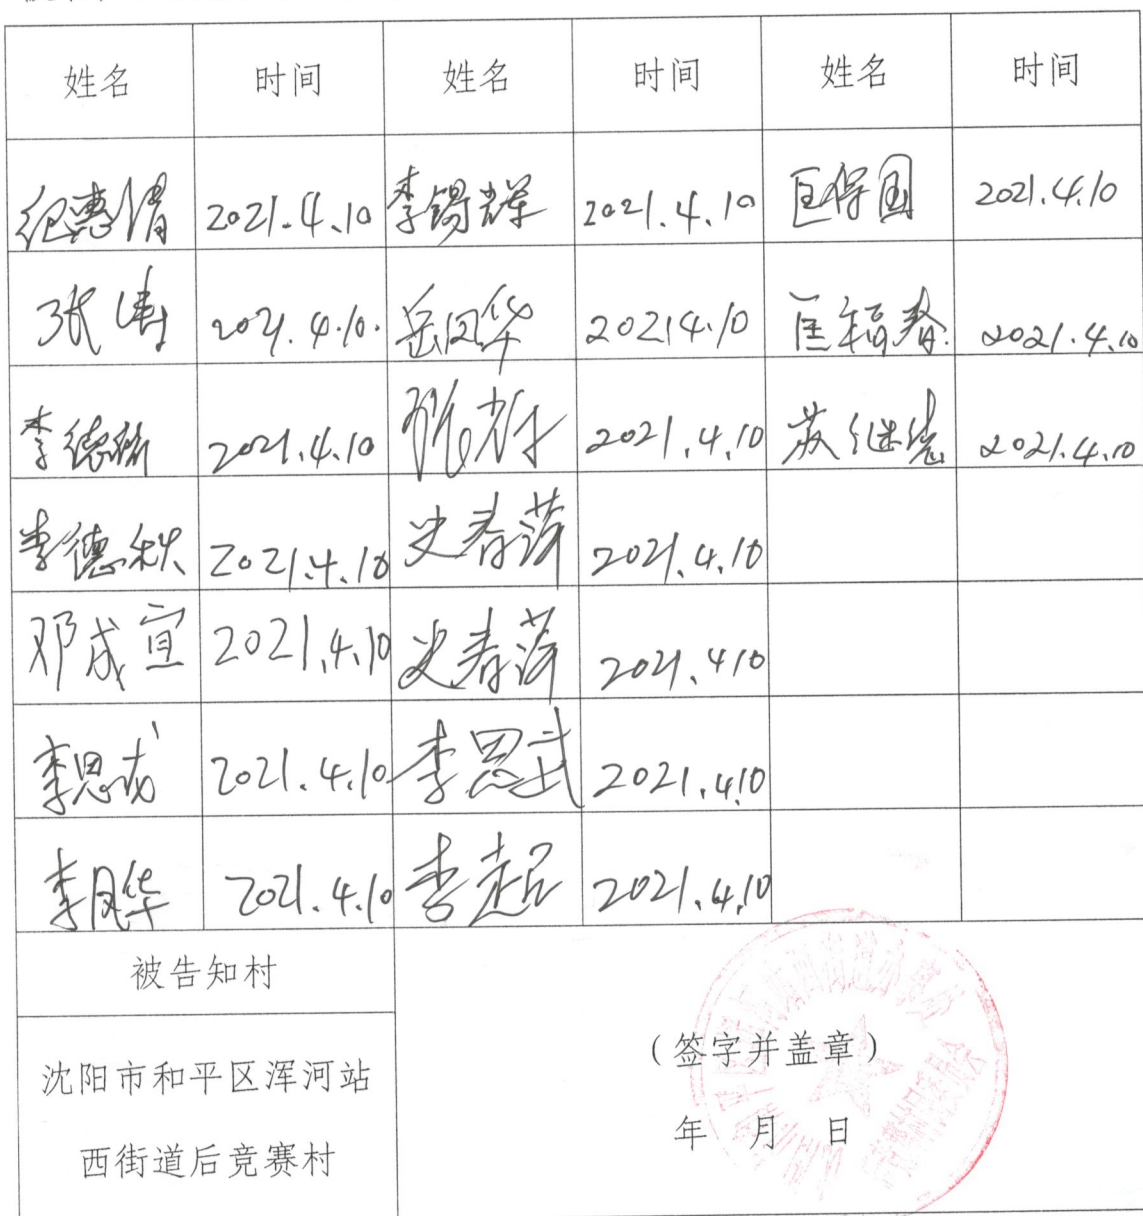 姓名 时间 姓名 时间 姓名 时间
纪惠清 2021.4.10 李锡辉 2021.4.10 匡保国 2021.4.10
张涛 2021.4.10. 岳凤华 20214.10 匡福春. 2021.4.10
李德 2021.4.10 2021.4.10 苏继 2021.4.10
李德秋 2021.4.10 史春萍 2021.4.10
邓成宣 2021.4.10 史春萍 2021.410
李思成 2021.4.10 李思武 2021.410
李凤华 2021.4.10 李超 2021.4.10
被告知村
沈阳市和平区浑河站
西街道后竞赛村
(签字并盖章)
年 月 日